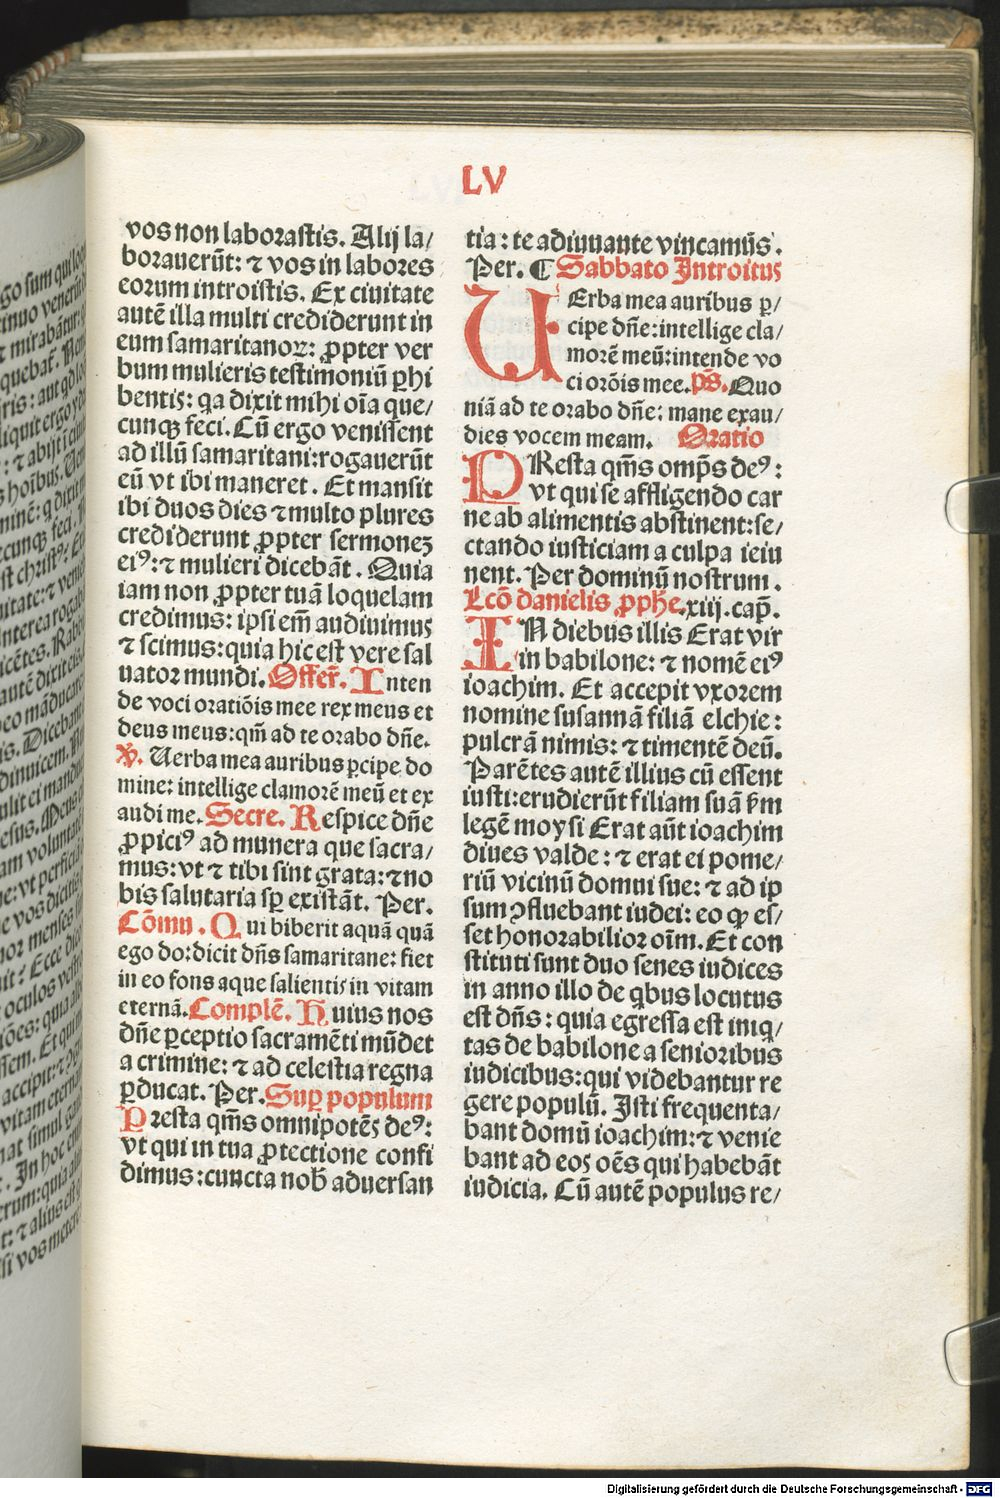 LV
vos non laborastis. Alij la/
borauerūt: ⁊ vos in labores
eorum introistis. Ex ciuitate
autē illa multi crediderunt in
eum samaritanoꝝ: ꝓpter ver
bum mulieris testimoniū ꝑhi
bentis: qa dixit mihi oīa que/
cunqꝫ feci. Cū ergo venissent
ad illū samaritani: rogauerūt
eū vt ibi maneret. Et mansit
ibi duos dies ⁊ multo plures
crediderunt ꝓpter sermoneꝫ
eiꝰ: ⁊ mulieri dicebāt. Quia
iam non ꝓpter tuā loquelam
credimus: ipsi em̄ audiuimus
⁊ scimus: quia hic est vere sal
uator mundi. Offer̄. Inten
de voci oratiōis mee rex meus et
deus meus: qm̄ ad te orabo dn̄e.
℣. Uerba mea auribus ꝑcipe do
mine: intellige clamorē meū et ex
audi me. Secre. Respice dn̄e
ꝓpiciꝰ ad munera que sacra/
mus: vt ⁊ tibi sint grata: ⁊ no
bis salutaria sꝑ existāt. Per.
Cōmu. Qui biberit aquā quā
ego do: dicit dn̄s samaritane: fiet
in eo fons aque salientis in vitam
eternā. Complē. Huius nos
dn̄e ꝑceptio sacramēti mūdet
a crimine: ⁊ ad celestia regna
ꝑducat. Per. Suꝑ populum
Presta qm̄s omnipotēs deꝰ:
vt qui in tua ꝓtectione confi
dimus: cuncta nob̄ aduersan
tia: te adiuuante vincamꝰs.
Per. ¶ Sabbato Introitus
UErba mea auribus ꝑ/
cipe dn̄e: intellige cla/
morē meū: intende vo
ci orōis mee. ps̄. Quo
niā ad te orabo dn̄e: mane exau/
dies vocem meam. Oratio
PResta qm̄s omp̄s deꝰ:
vt qui se affligendo car
ne ab alimentis abstinent: se/
ctando iusticiam a culpa ieiu
nent. Per dominū nostrum.
Lcō danielis ꝓph̄e. xiij. cap̄.
IN diebus illis Erat vir
in babilone: ⁊ nomē eiꝰ
ioachim. Et accepit vxorem
nomine susannā filiā elchie:
pulcrā nimis: ⁊ timentē deū.
Parētes autē illius cū essent
iusti: erudierūt filiam suā ẜm
legē moysi Erat aūt ioachim
diues valde: ⁊ erat ei pome/
riū vicinū domui sue: ⁊ ad ip
sum ꝯfluebant iudei: eo qꝙ es/
set honorabilior oīm. Et con
stituti sunt duo senes iudices
in anno illo de qbus locutus
est dn̄s: quia egressa est iniq/
tas de babilone a senioribus
iudicibus: qui videbantur re
gere populū. Isti frequenta/
bant domū ioachim: ⁊ venie
bant ad eos oēs qui habebāt
iudicia. Cū autē populus re/
Digitalisierung gefördert durch die Deutsche Forschungsgemeinschaft - DFG